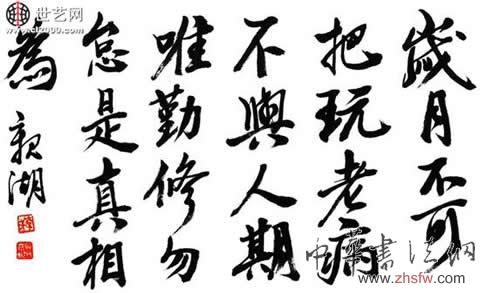 歲月不可
把玩老病
不與人期
唯勤修勿
怠是真相
為
湖
世艺网
www.cl2000.com
中華書法網
www.zhsfw.com